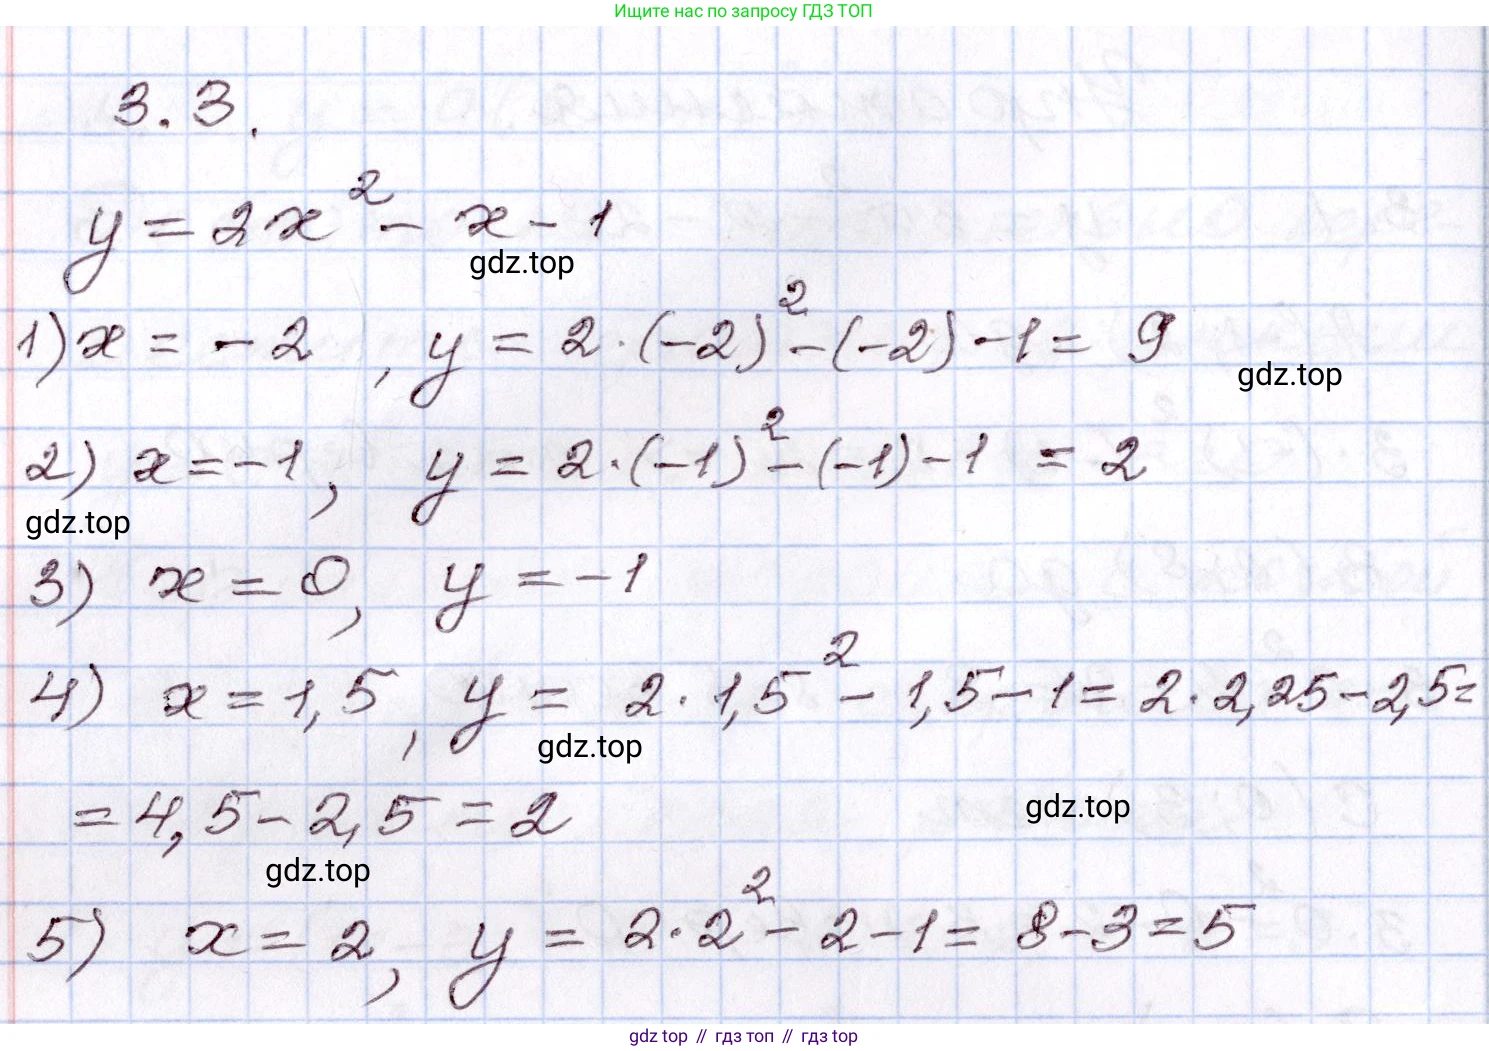 Ищите нас по запросу ГДЗ ТОП
3.3.
y = 2x² - x - 1
gdz.top
1) x = -2, y = 2·(-2)² - (-2) - 1 = 9
gdz.top
2) x = -1, y = 2·(-1)² - (-1) - 1 = 2
gdz.top
3) x = 0, y = -1
4) x = 1,5, y = 2·1,5² - 1,5 - 1 = 2·2,25 - 2,5 =
gdz.top
= 4,5 - 2,5 = 2
gdz.top
gdz.top
5) x = 2, y = 2·2² - 2 - 1 = 8 - 3 = 5
gdz top // гдз топ // гдз top